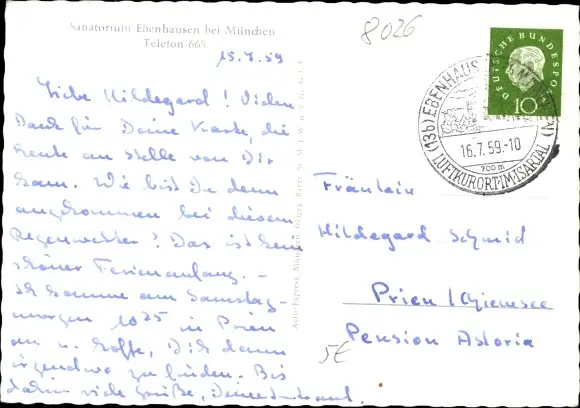 Sanatorium Ebenhausen bei München
Telefon 665
8026
15.7.59
Liebe Hildegard! Vielen
Dank für Deine Karte, die
heute an Stelle von Dir
kam. Wie bist Du denn
angekommen bei diesem
Regenwetter? Das ist kein
schöner Ferienanfang. –
Ich komme am Samstag-
morgen 10 25 in Prien
an u. hoffe, Dich dann
irgendwo zu finden. Bis
dahin viele Grüße, Deine
DEUTSCHE BUNDESPOST
10
(13b) EBENHAUSEN
16.7.59.-10
700m
LUFTKURORT IM ISARTAL
Fräulein
Hildegard Schmid
Prien/Chiemsee
Pension Astoria
5€